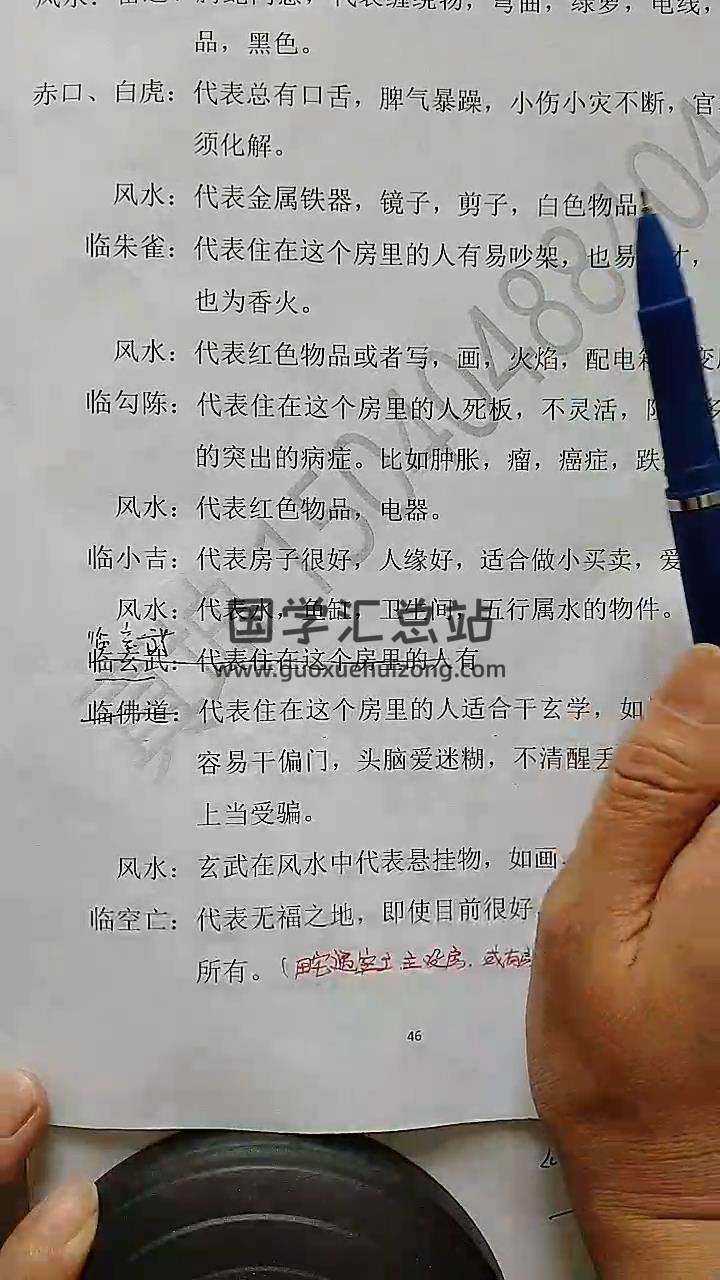 品，黑色。
赤口、白虎：代表总有口舌，脾气暴躁，小伤小灾不断，官
须化解。
风水：代表金属铁器，镜子，剪子，白色物品
临朱雀：代表住在这个房里的人有易吵架，也易 才，
也为香火。
风水：代表红色物品或者写，画，火焰，配电箱 变
临勾陈：代表住在这个房里的人死板，不灵活，
的突出的病症。比如肿胀，瘤，癌症，跌
风水：代表红色物品，电器。
临小吉：代表房子很好，人缘好，适合做小买卖，爱
风水：代表水，鱼缸，卫生间，五行属水的物件。
国学汇总站
临玄武
临玄武：代表住在这个房里的人有
www.guoxuehuizong.com
临佛道：代表住在这个房里的人适合干玄学，如
容易干偏门，头脑爱迷糊，不清醒丢
上当受骗。
风水：玄武在风水中代表悬挂物，如画
临空亡：代表无福之地，即使目前很好
所有。（阳宅遇空亡主没房，或有
46
15040488404